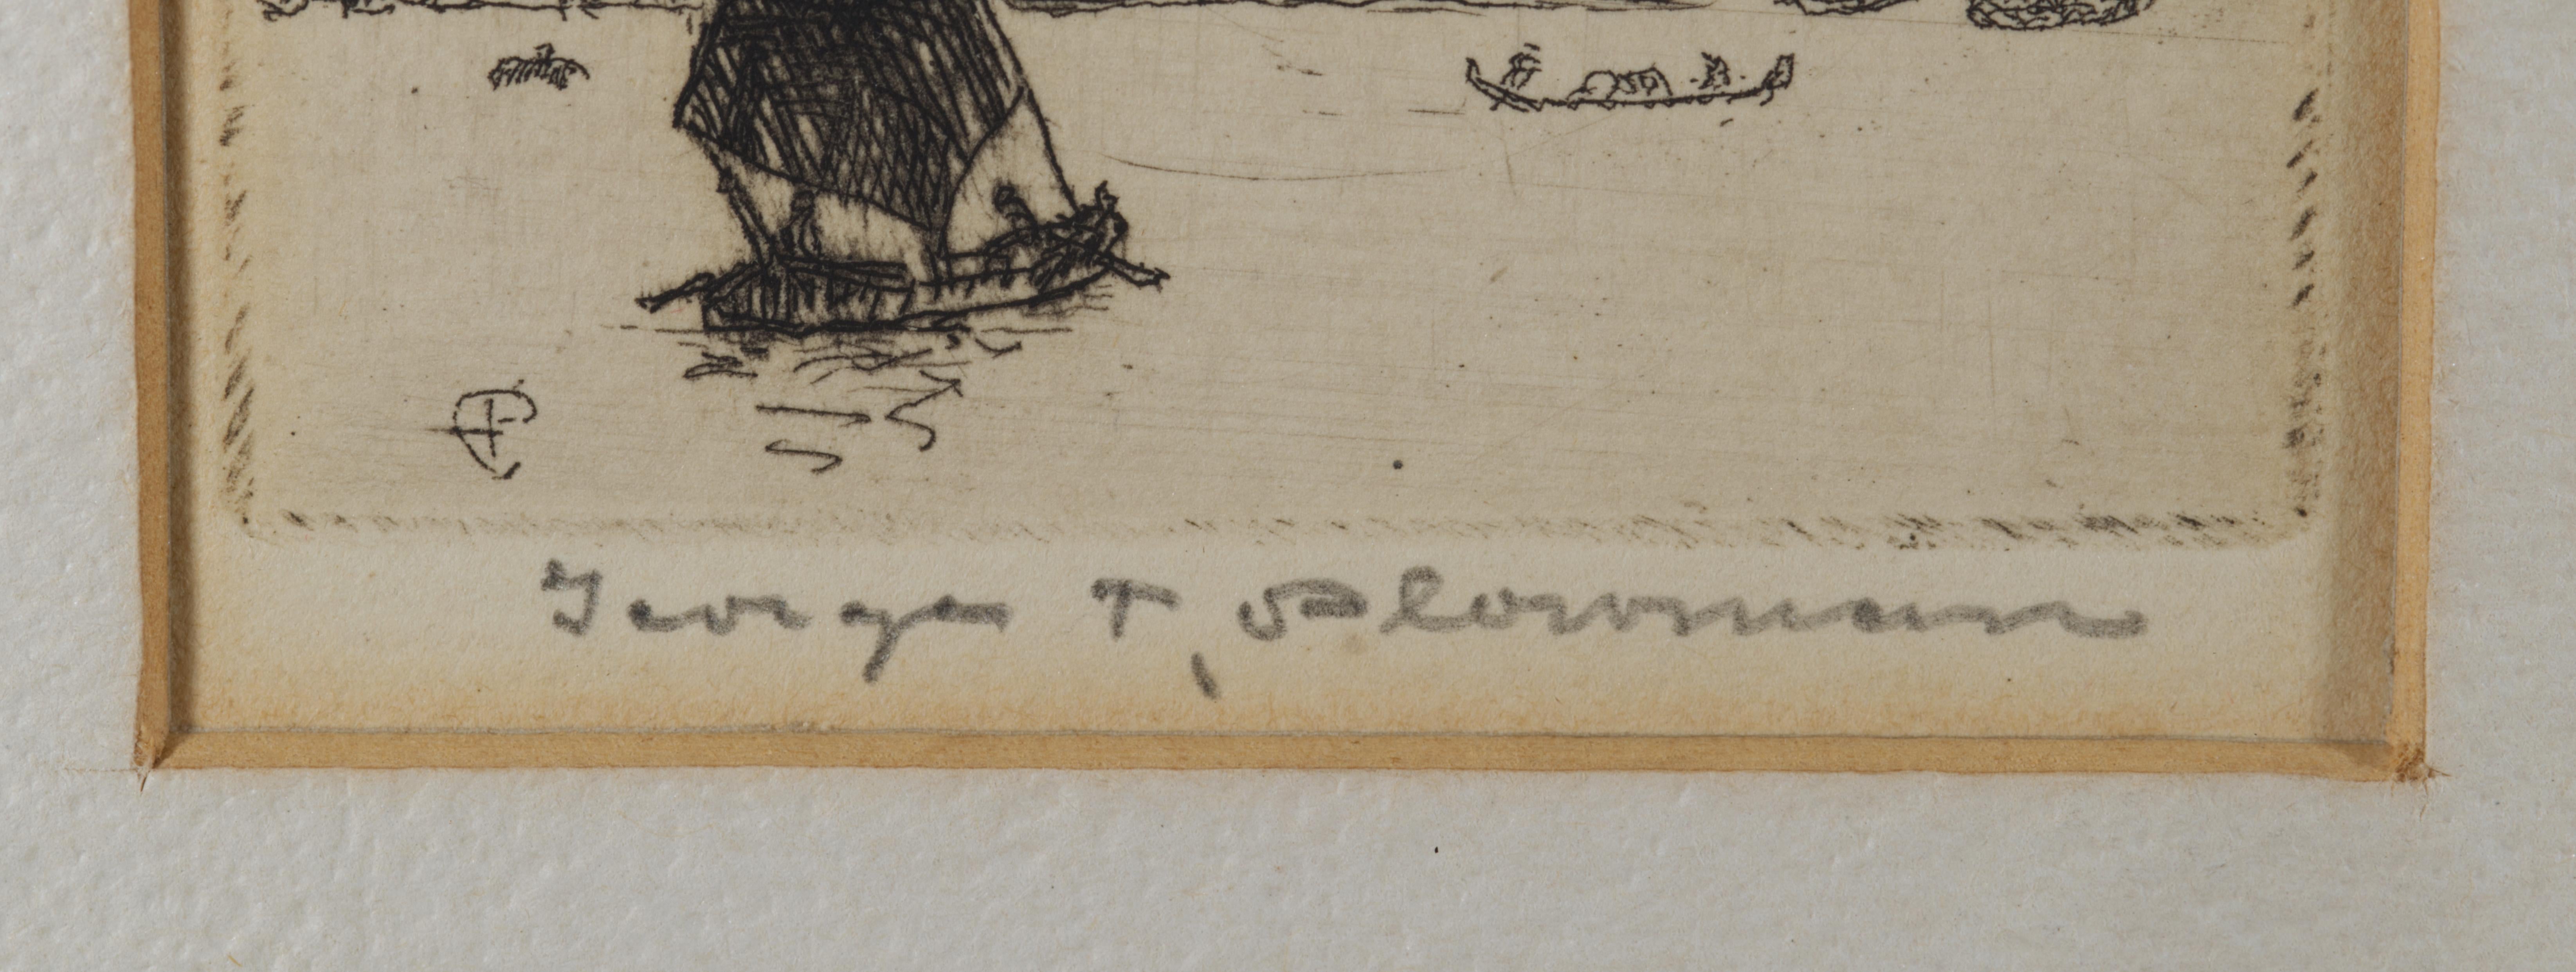 George T Plowman